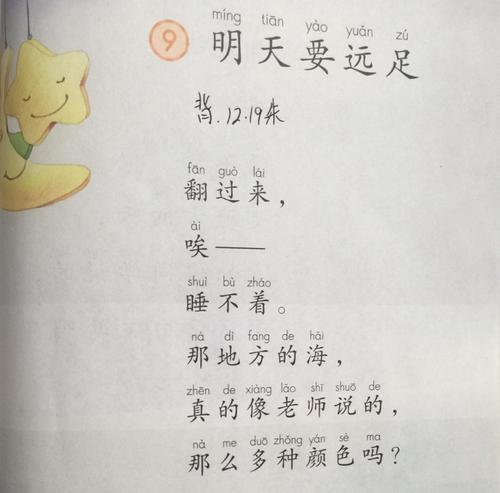 míng tiān yào yuǎn zú
9 明天要远足
背.12.19朱
fān guò lái
翻过来，
ài
唉——
shuì bù zháo
睡不着。
nà dì fang de hǎi
那地方的海，
zhēn de xiàng lǎo shī shuō de
真的像老师说的，
nà me duō zhǒng yán sè ma
那么多种颜色吗？